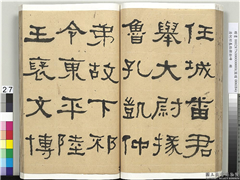 任城番君
舉大尉掾
魯孔凱仲
弟故下邳
令東平陸
王襃文博
27